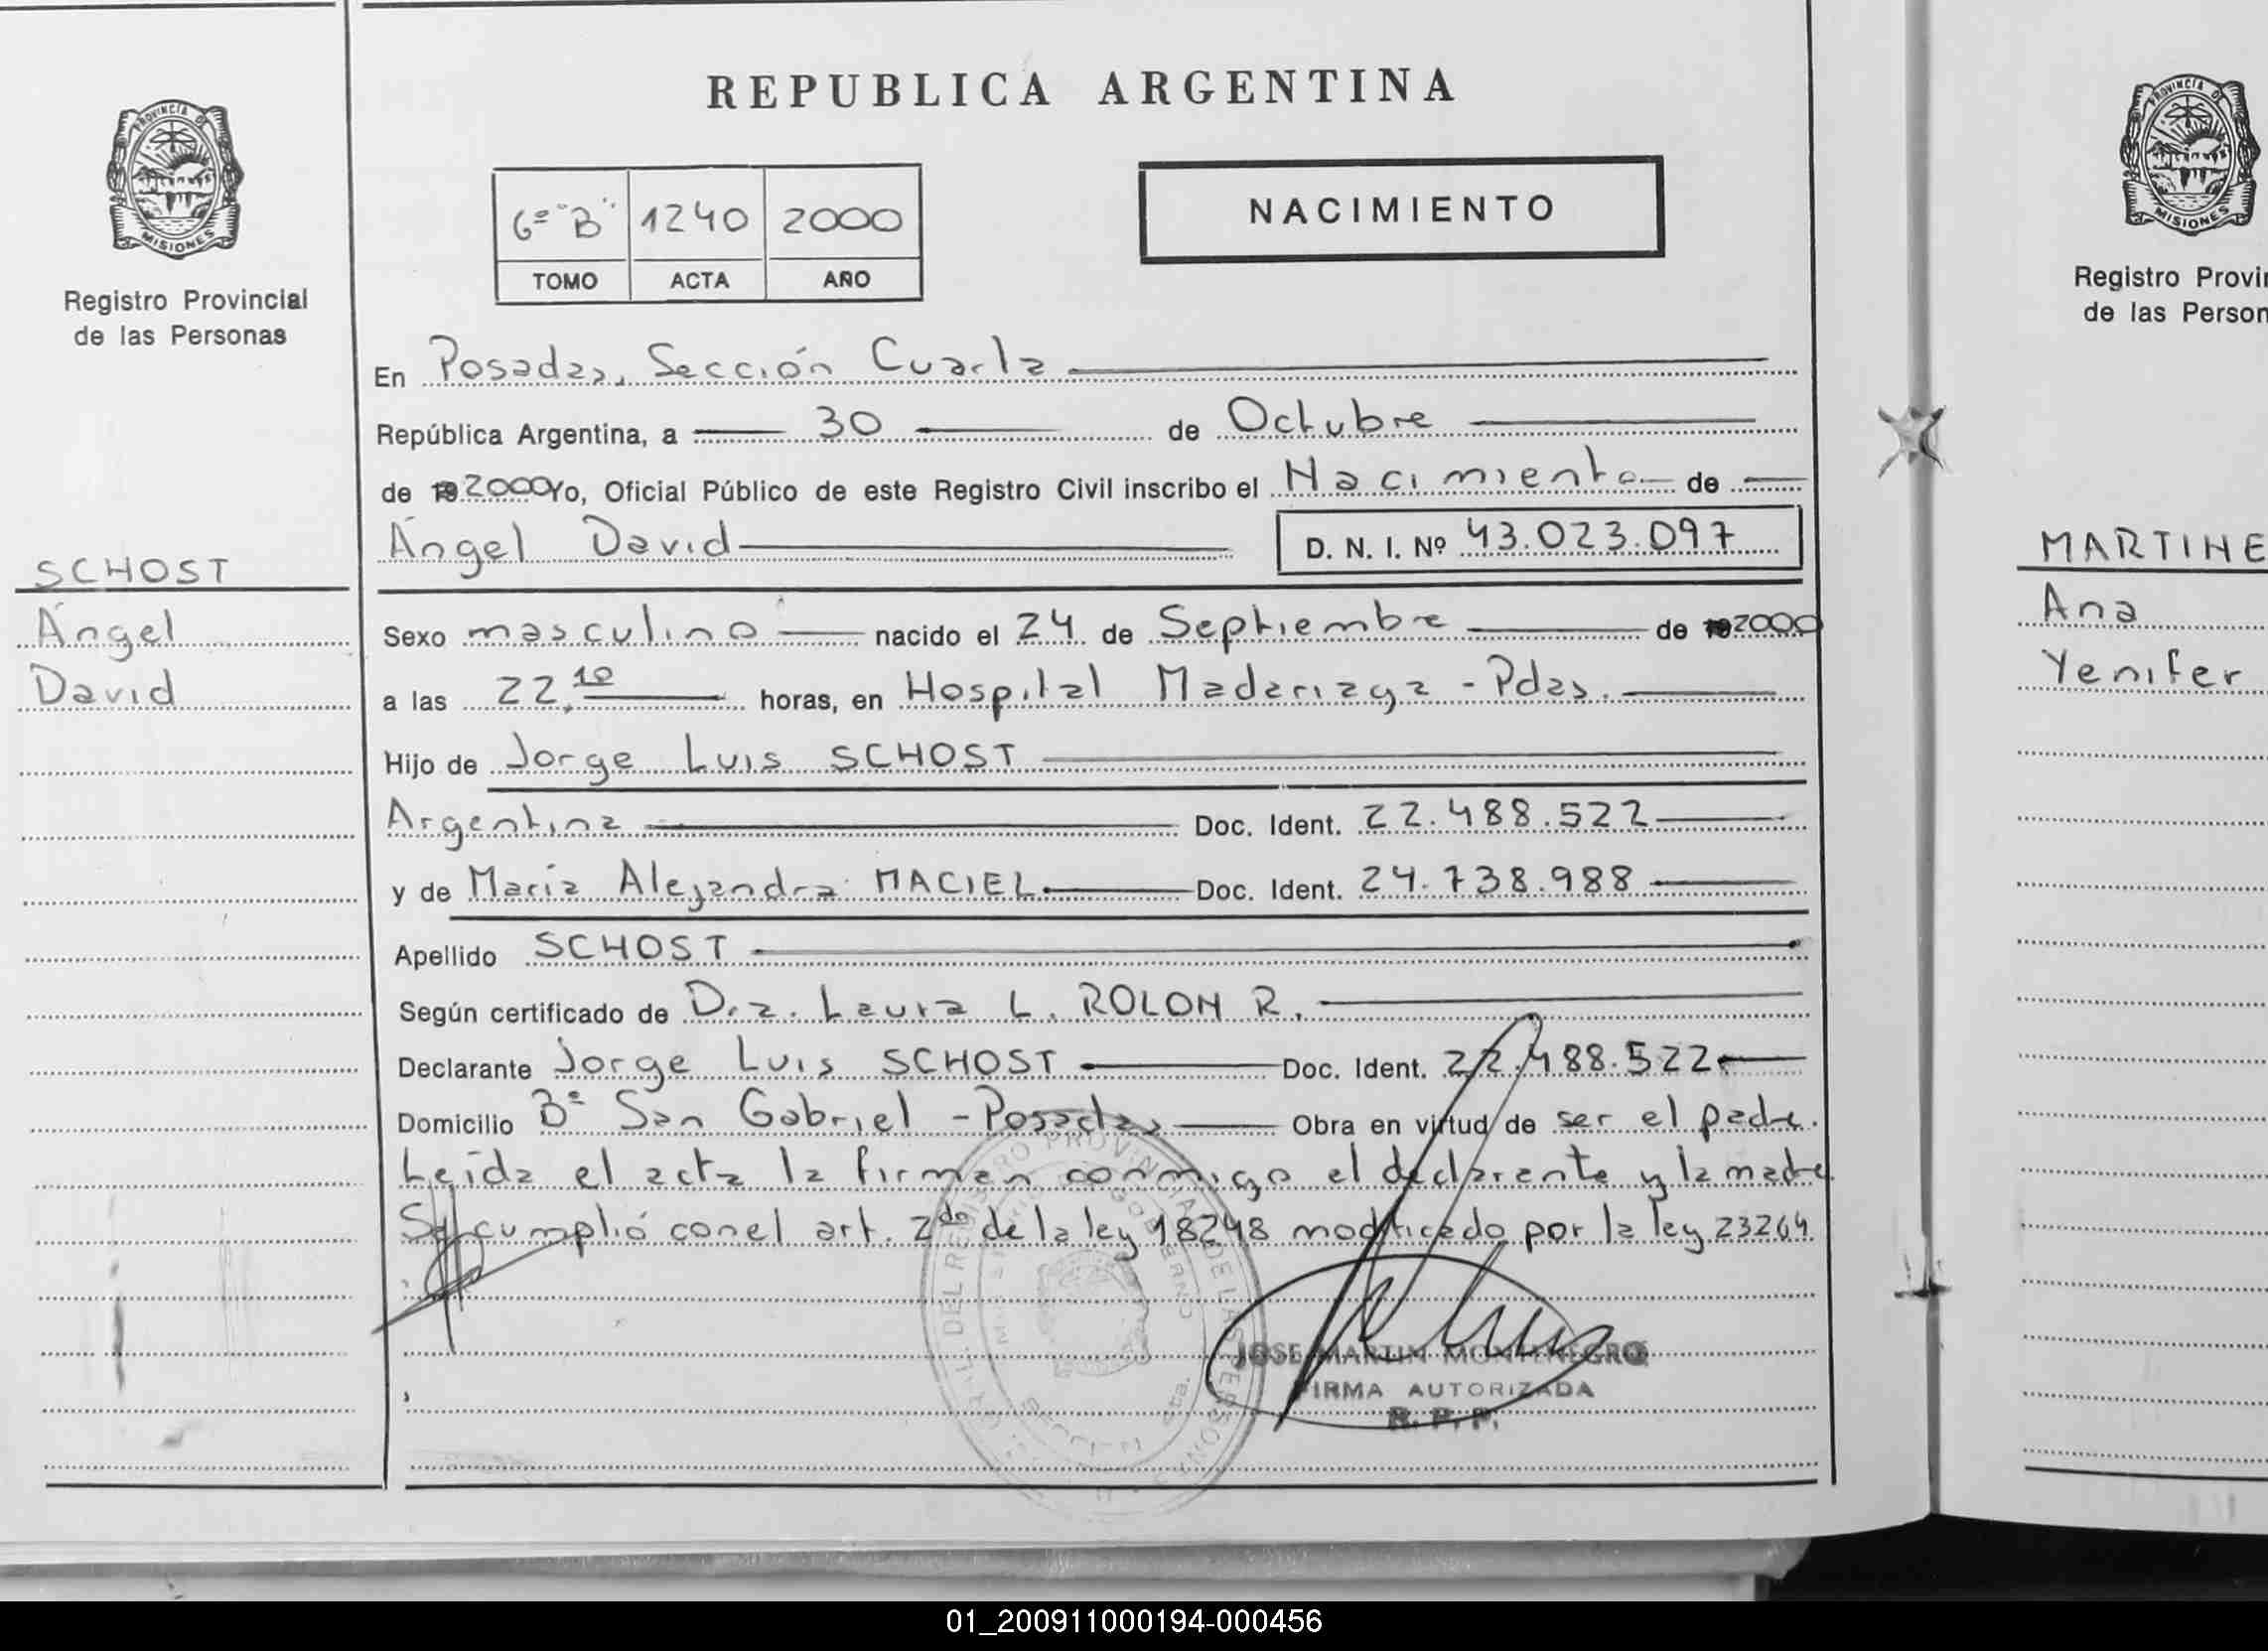 REPUBLICA ARGENTINA
PROVINCIA DE
MISIONES
Registro Provincial
de las Personas
6º "B" 1240 2000
TOMO ACTA AÑO
NACIMIENTO
En Posadas, Sección Cuarta
República Argentina, a 30 de Octubre
de 19 2000 Yo, Oficial Público de este Registro Civil inscribo el Nacimiento de
Ángel David D. N. I. Nº 43.023.097
SCHOST
Ángel
David
Sexo masculino nacido el 24 de Septiembre de 19 2000
a las 22,10 horas, en Hospital Madariaga - Pdas.
Hijo de Jorge Luis SCHOST
Argentina Doc. Ident. 22.488.522
y de María Alejandra MACIEL Doc. Ident. 24.738.988
Apellido SCHOST
Según certificado de Dra. Laura L. ROLON R.
Declarante Jorge Luis SCHOST Doc. Ident. 22.488.522
Domicilio Bº San Gabriel - Posadas Obra en virtud de ser el padre.
Leída el acta la firman conmigo el declarante y la madre
Se cumplió con el art. 2do de la ley 18248 modificado por la ley 23264
JOSE MARTIN MONTENEGRO
FIRMA AUTORIZADA
R. P. P.
PROVINCIA DE
MISIONES
Registro Provin
de las Person
MARTINE
Ana
Yenifer
01_200911000194-000456